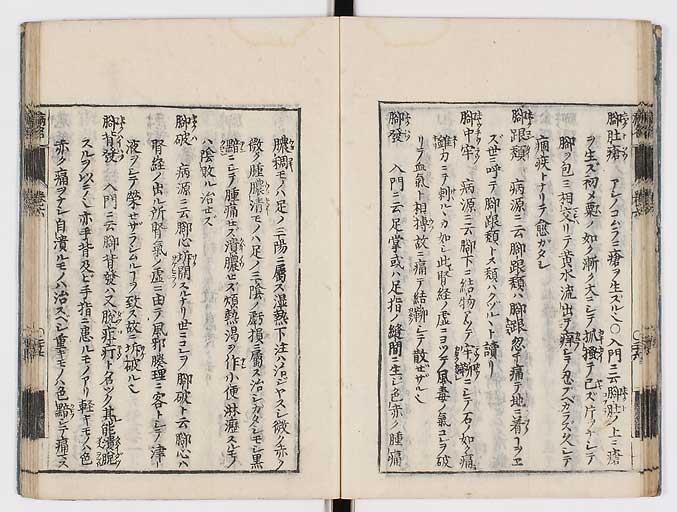 脚肚瘡 アシノコムラニ瘡ヲ生ズル也○入門ニ云脚肚ノ上ニ瘡
ヲ生ス初メ粟ノ如ク漸ク大ニシテ抓搔シテ已ズ片ヲナシテ
脚ヲ包ミ相交リテ黄水流出テ痒シテ忍ブベカラズ久シテ
痼疾トナリテ愈ガタシ
脚跟頽 病源ニ云脚跟頽ハ脚跟忽チ痛テ地ニ着コヲヱ
ズ世ニ呼テ脚跟頽ト
脚中牢 病源ニ云脚下ニ結物アリテ牢シテ石ノ如ク痛
錐刀ニテ刺ルヽカ如シ此腎経ノ虚ニヨツテ風毒ノ氣コレヲ破
リテ血氣ト相搏故ニ痛テ結シテ散セザル也
脚發 入門ニ云足掌或ハ足指ノ縫間ニ生シ色赤ク腫痛
膿稠モノハ足ノ三陽ニ屬ス湿熱下注ハ治シヤスシ微ク赤ク
微ク腫膿清モノハ足ノ三陰ノ虧損ニ屬ス治シガタシモシ黒
黯ニシテ腫痛セズ潰膿セズ煩熱渇ヲ作小便淋瀝スルモノ
ハ陰敗ル治セズ
脚破 病源ニ云脚心坼開スルナリ世ニコレヲ脚破ト云脚心ハ
腎経ノ出ル所腎氣ノ虚ニ由テ風邪腠理ニ客トシテ津
液ヲシテ榮セザラシムルコヲ致ス故ニ坼破ル也
脚背發 入門ニ云脚背發ハ又脱疽疔ト名ツク其能潰脱
スルヲ以テ也亦手背及ビ手指ニ患ルモノアリ軽キモノハ色
赤ク痛ヲナシ自潰ルモノハ治スベシ重キモノハ色黯シテ痛マス